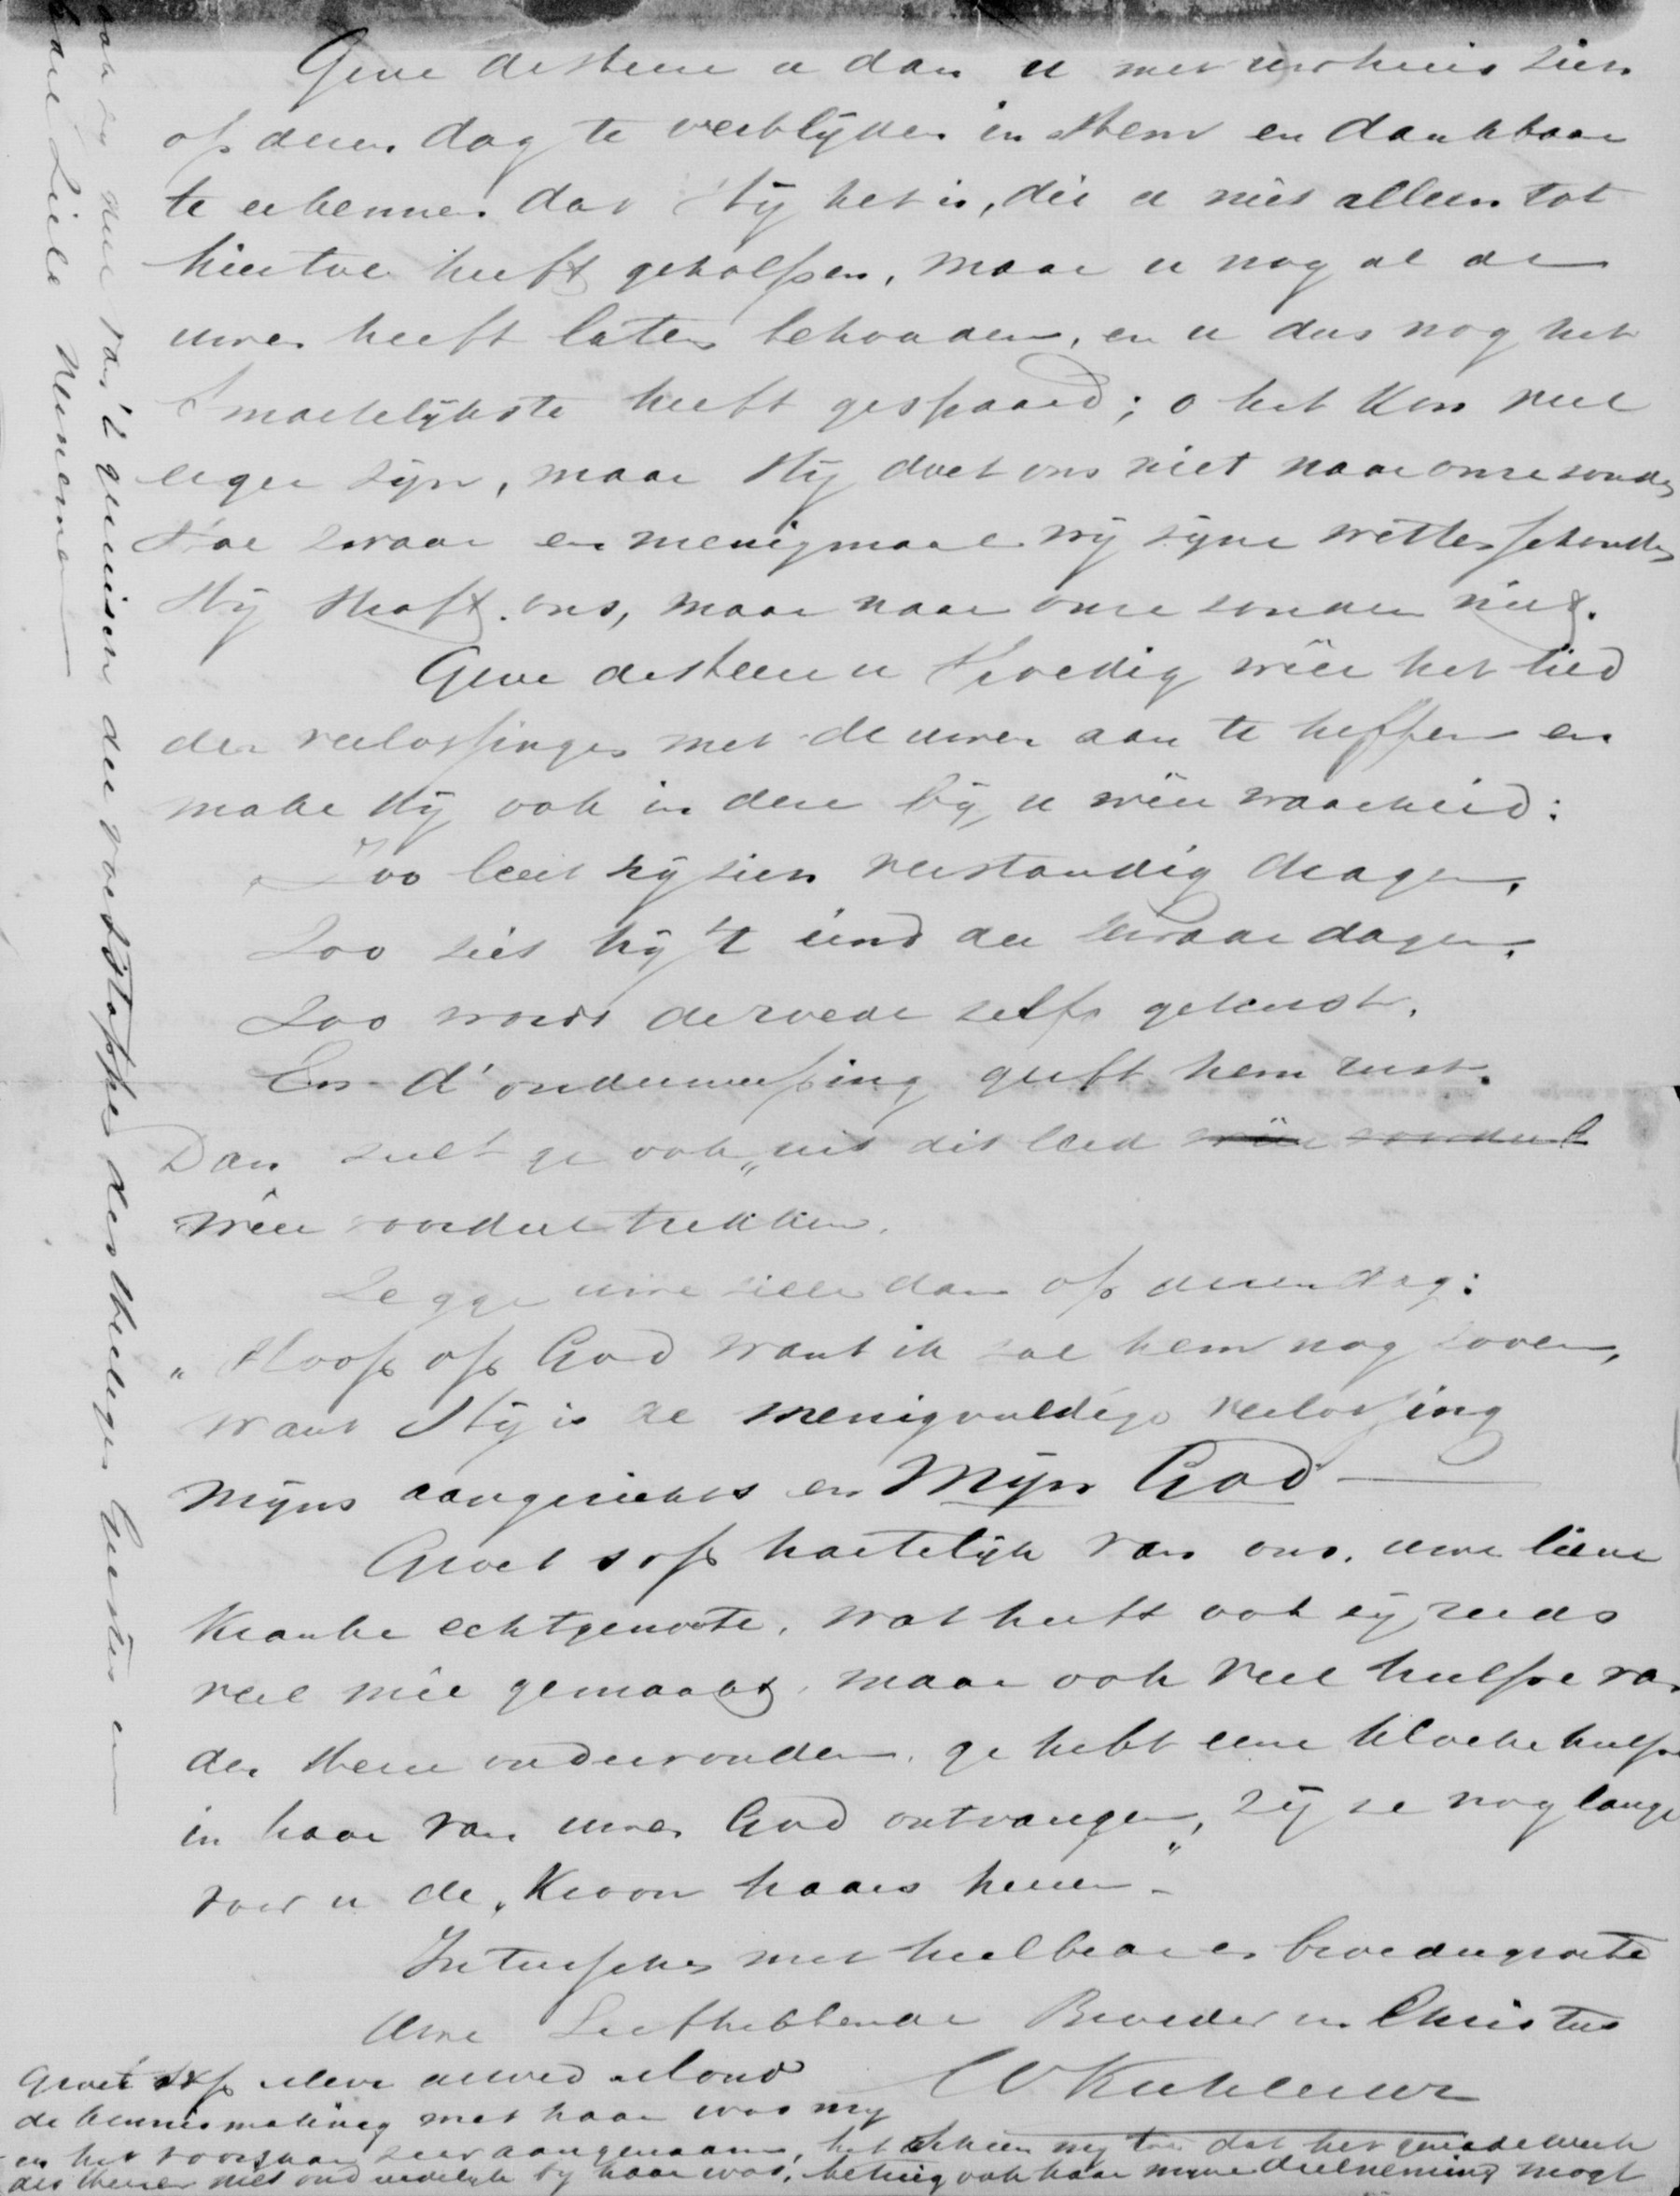 Geve de Heere u dan u met uw huis zien
op dezen dag te verblijden in Hem en dankbaar
te erkennen dat Hij het is, die u niet alleen tot
hiertoe heeft geholpen, maar u nog al de
uwen heeft laten behouden, en u dus nog het
smartelijkste heeft gespaard; o het kon veel
erger zijn, maar Hij doet ons niet naar onze zonden
Hoe zwaar en menigmaal wij zijne wetten schonden
Hij straft ons, maar naar onze zonden niet.
Geve de Heere u spoedig wêer het lied
der verlossingen met de uwen aan te heffen en
make Hij ook in deze bij u wêer waarheid:
Zoo leert hij zien verstandig dragen,
Zoo ziet hij 't eind der kwaade dagen,
Zoo word de roede zelfs gekust,
En d' onderwerping geeft hem rust.
Dan zult ge ook „uit dit leed wêer voordeel
wêer voordeel trekken.
Zegge uwe ziele dan op dezen dag:
„Hoop op God want ik zal hem nog loven,
want Hij is de menigvuldige verlossing
mijns aangezichts en Mijn God —
Groet s.v.p. hartelijk van ons, uwe lieve
kranke echtgenoote, wat heeft ook zij reeds
veel mêe gemaakt, maar ook veel hulpe van
den Heere ondervonden, ge hebt eene kloeke hulpe
in haar van uwen God ontvangen, zij ze nog lange
voor u de „Kroon haars heeren"
Intusschen met heilbede en broedergroete
Uwe Liefhebbende Broeder in Christus
Groet s.v.p. Mevr
de kennismaking met haar was mij
en het voorgaan zeer aangenaam, het scheen mij toe dat het genadewerk
des Heeren niet onduidelijk bij haar was, betuig ook haar mijne deelneming mogt
ook zij veel van 't genieten der voetstappen des Heiligen Geestes in
hare Ziele vernemen —